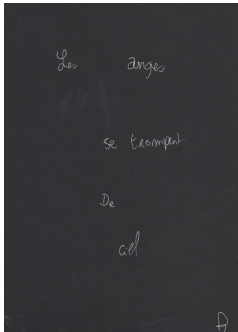 Les anges
se trompent
De
ciel